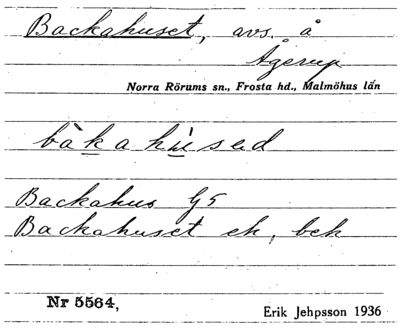 Backahuset, avs. å
Agerup
Norra Rörums sn., Frosta hd., Malmöhus län
bàkahùsəd
Backahus G5
Backahuset ek, bek
Nr 5564,
Erik Jehpsson 1936